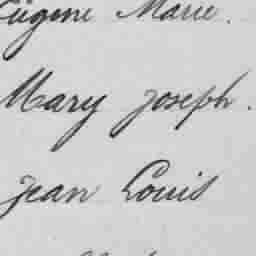 Eugene Marie.
Mary Joseph.
Jean Louis